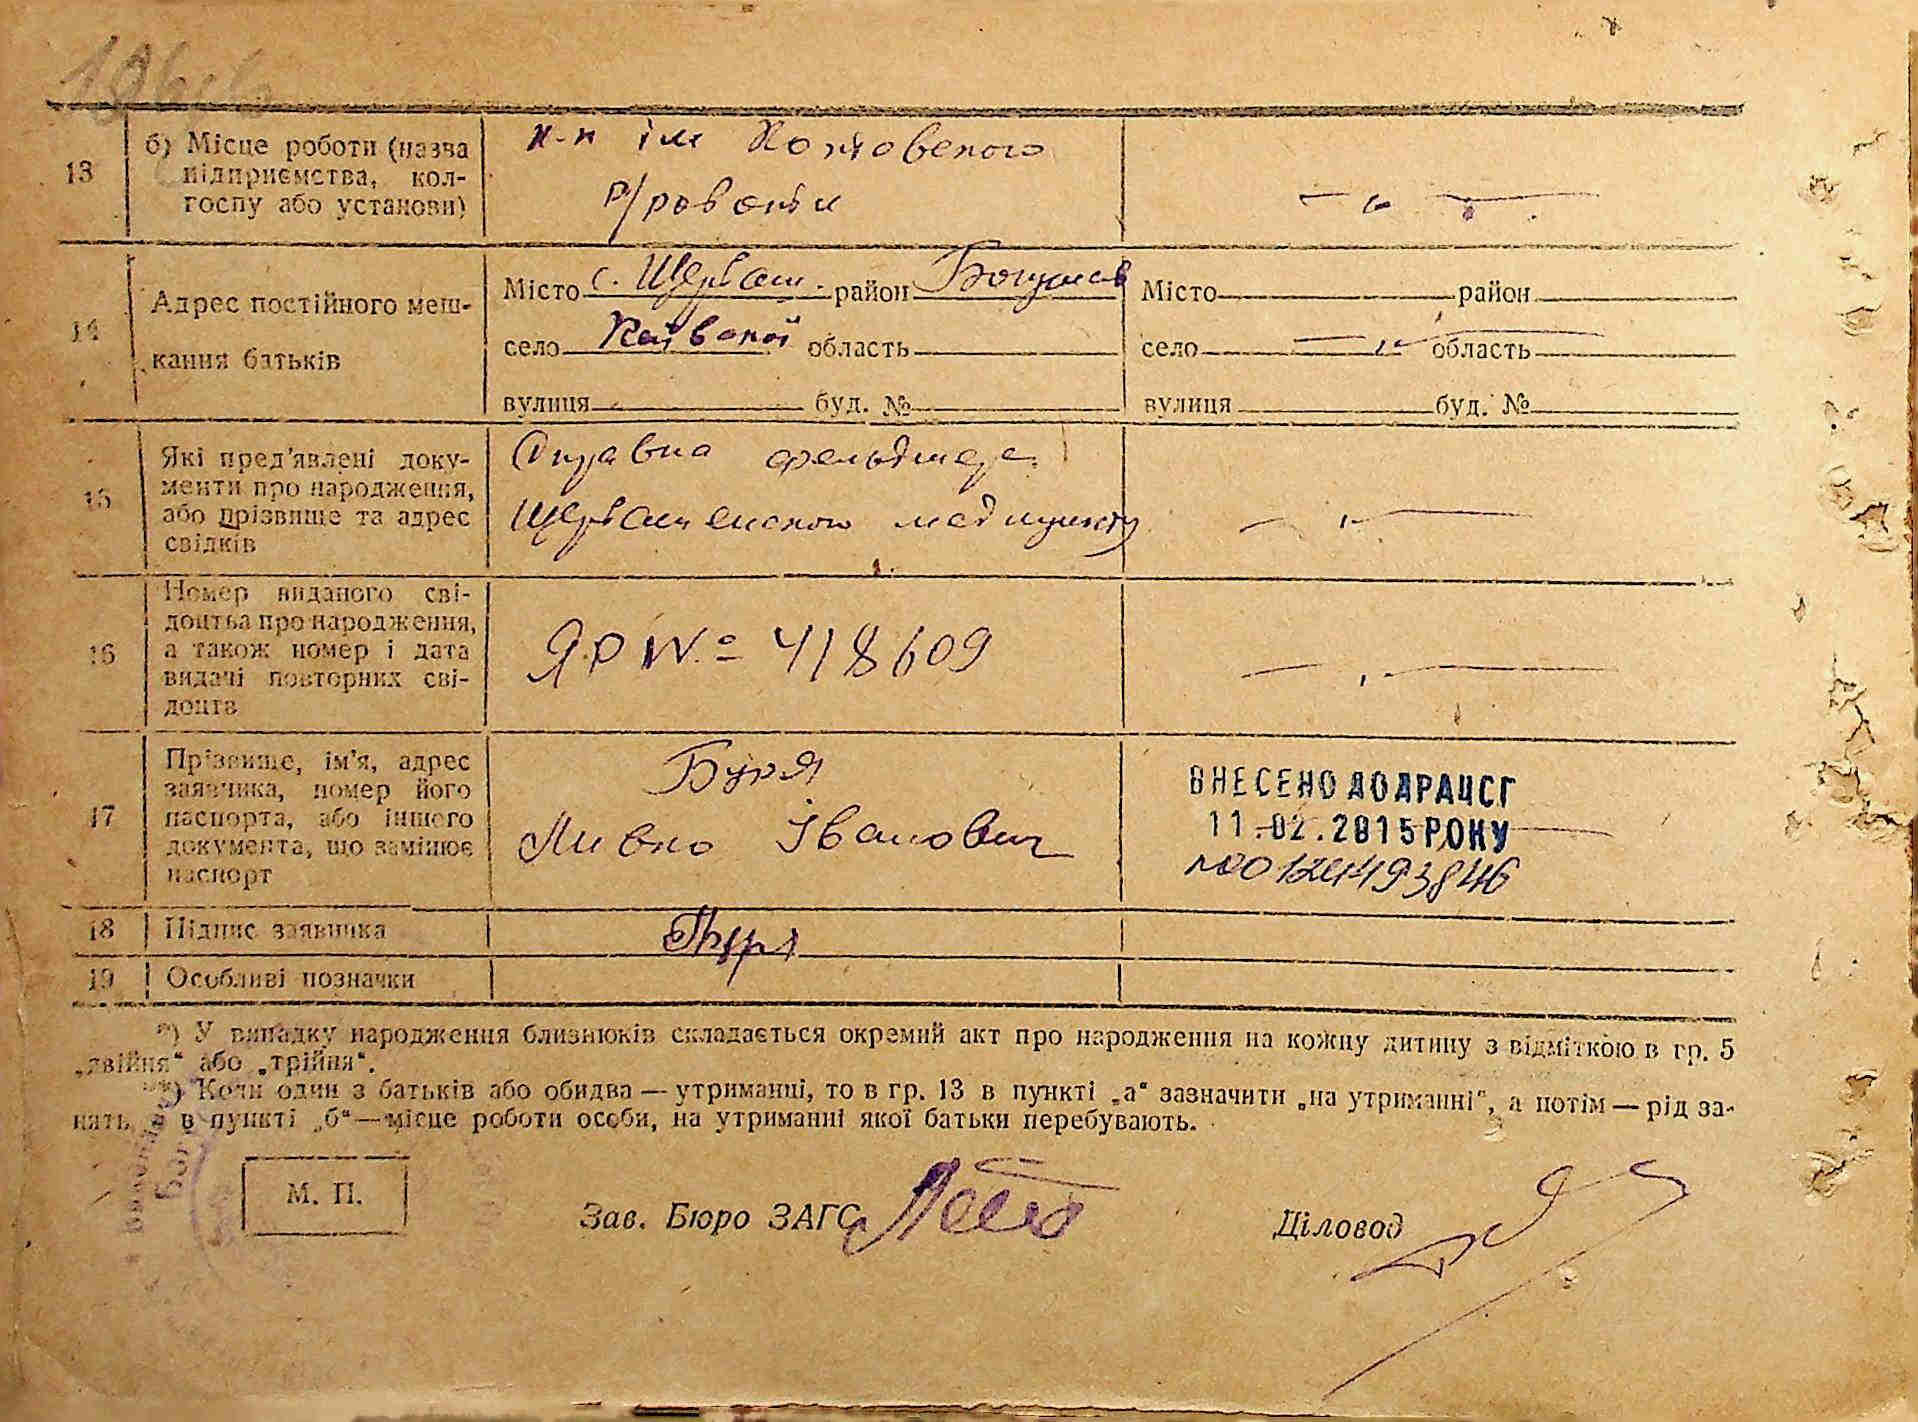 13
б) Місце роботи (назва
підприємства, кол-
госпу або установи)
к-п ім Котовського
р/роботи
14
Адрес постійного меш-
кання батьків
Місто с. Щербаш. район Богуслав
село Київської область
вулиця буд. №
Місто район
село область
вулиця буд. №
15
Які пред'явлені доку-
менти про народження,
або прізвище та адрес
свідків
Справка фельдшера
Щербашенского медпункту
16
Номер виданого сві-
доцтва про народження,
а також номер і дата
видачі повторних сві-
доцтв
ЯР № 418609
17
Прізвище, ім'я, адрес
заявника, номер його
паспорта, або іншого
документа, що замінює
паспорт
Буря
Іванович
ВНЕСЕНО ДО ДРАЦСГ
11.02.2015 РОКУ
№00124493846
18
Підпис заявника
19
Особливі позначки
*) У випадку народження близнюків складається окремий акт про народження на кожну дитину з відміткою в гр. 5
„двійня“ або „трійня“.
**) Коли один з батьків або обидва — утриманці, то в гр. 13 в пункті „а“ зазначити „на утриманні“, а потім — рід за-
нять, а в пункті „б“ — місце роботи особи, на утриманні якої батьки перебувають.
М. П.
Зав. Бюро ЗАГС
Діловод